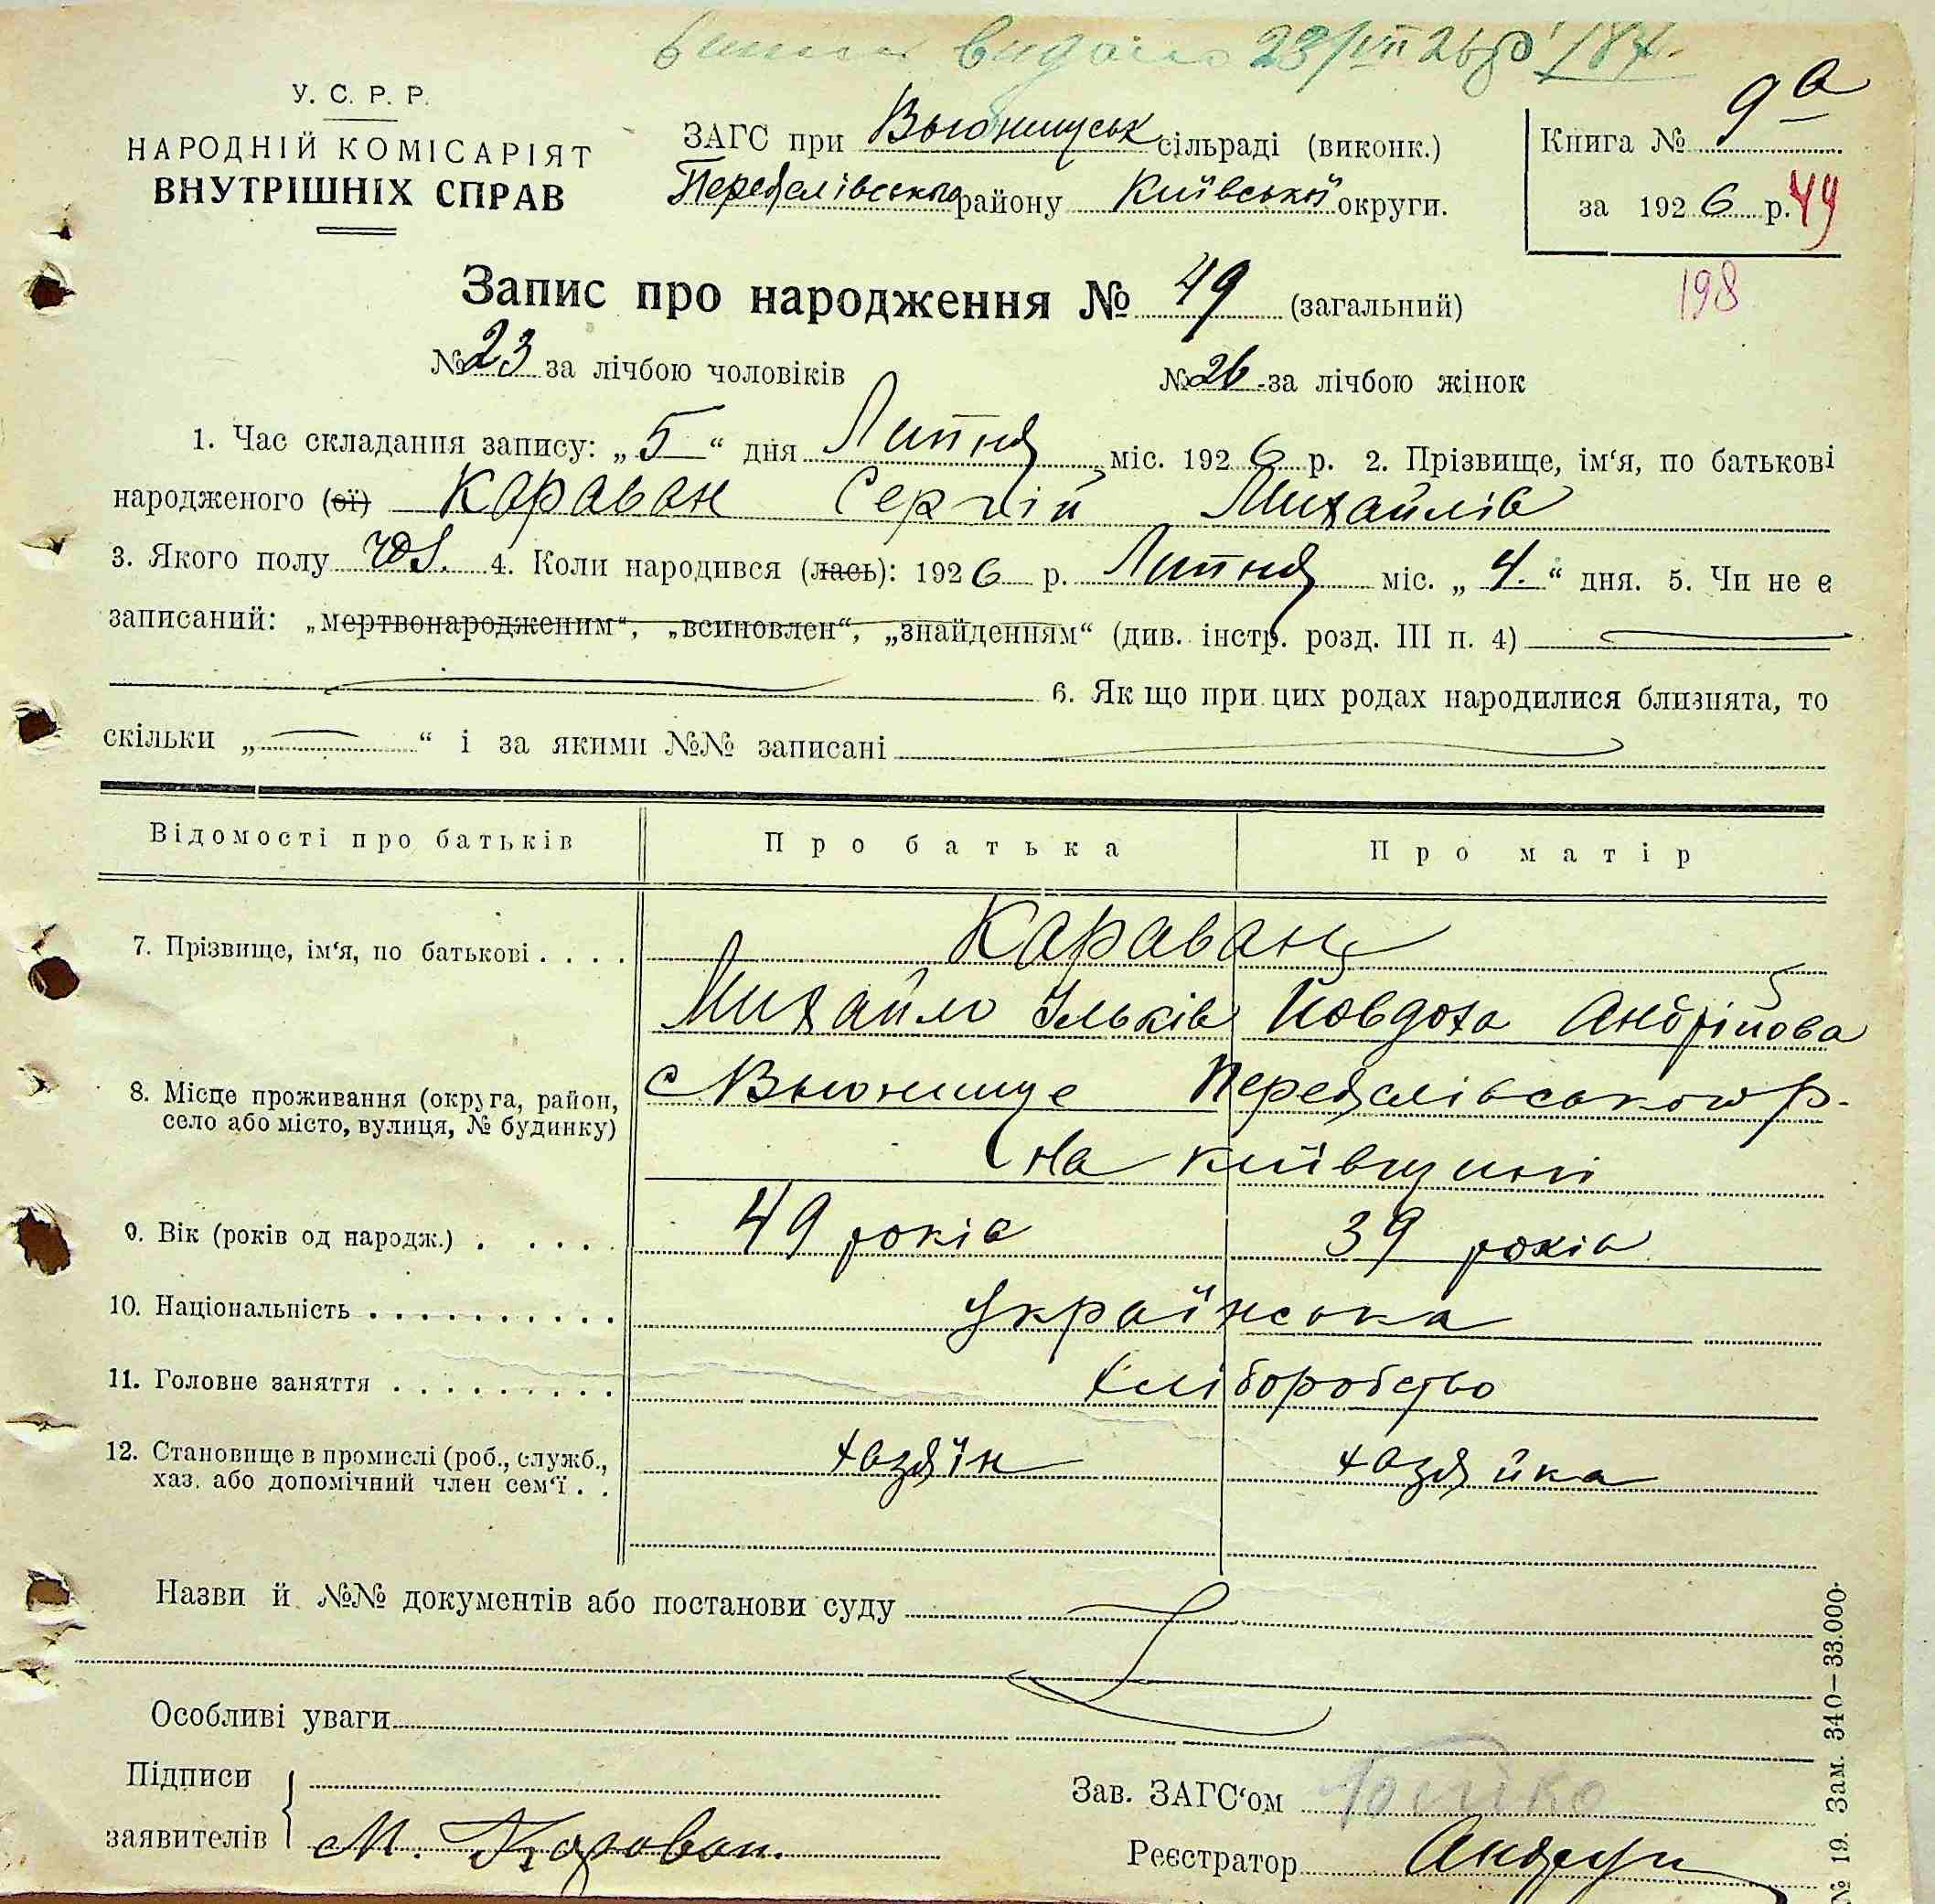 видано 23/VII 26 р
У. С. Р. Р.
НАРОДНІЙ КОМІСАРІЯТ
ВНУТРІШНІХ СПРАВ
ЗАГС при Вьюнищуськ сільраді (виконк.)
Переяслівського району Київської округи.
Книга № 9а
за 1926 р. 49
198
Запис про народження № 49 (загальний)
№ 23 за лічбою чоловіків № 26 за лічбою жінок
1. Час складання запису: „5“ дня Липня міс. 1926 р. 2. Прізвище, ім‘я, по батькові
народженого (ої) Караван Сергій Михайлів
3. Якого полу чол. 4. Коли народився (лась): 1926 р. Липня міс. „4.“ дня. 5. Чи не є
записаний: „мертвонародженим“, „всиновлен“, „знайденням“ (див. інстр. розд. III п. 4)
6. Як що при цих родах народилися близнята, то
скільки „ “ і за якими №№ записані
Відомості про батьків Про батька Про матір
7. Прізвище, ім‘я, по батькові . . . . Караван
Михайло Ільків Йовдоха Андрійова
8. Місце проживання (округа, район, с Вьюнище Переяслівського р.
село або місто, вулиця, № будинку)
На Київщині
9. Вік (років од народж.) . . . . . 49 років 39 років
10. Національність . . . . . . . . . . Українська
11. Головне заняття . . . . . . . . . Хліборобство
12. Становище в промислі (роб., служб., хазяїн хазяйка
хаз. або допомічний член сем‘ї . .
Назви й №№ документів або постанови суду
Особливі уваги
Підписи
заявителів М. Караван.
Зав. ЗАГС‘ом
Реєстратор
№ 19. Зам. 340—33.000